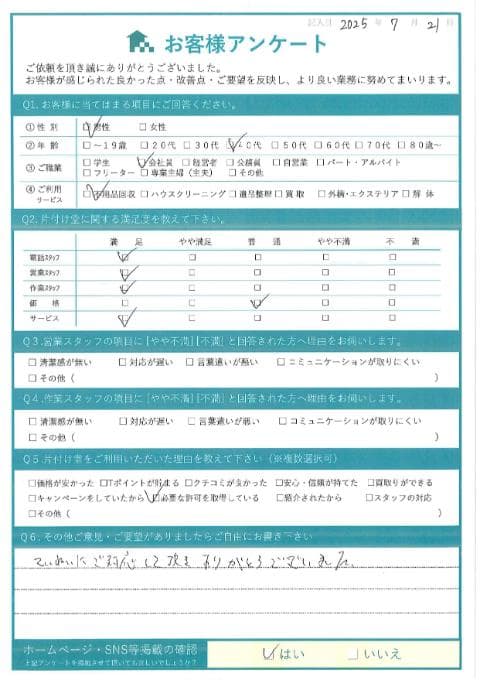 記入日 2025 年 7 月 21 日
お客様アンケート
ご依頼を頂き誠にありがとうございました。
お客様が感じられた良かった点・改善点・ご要望を反映し、より良い業務に努めてまいります。
Q1. お客様に当てはまる項目にご回答ください。
①性 別 ☑男性 □女性
②年 齢 □～19歳 □20代 □30代 ☑40代 □50代 □60代 □70代 □80歳～
③ご職業 □学生 ☑会社員 □経営者 □公務員 □自営業 □パート・アルバイト
□フリーター □専業主婦(主夫) □その他
④ご利用サービス ☑不用品回収 □ハウスクリーニング □遺品整理 □買取 □外構・エクステリア □解体
Q2. 片付け堂に関する満足度を教えて下さい。
満 足 やや満足 普 通 やや不満 不 満
電話スタッフ ☑ □ □ □ □
営業スタッフ ☑ □ □ □ □
作業スタッフ ☑ □ □ □ □
価 格 □ □ ☑ □ □
サービス ☑ □ □ □ □
Q3. 営業スタッフの項目に[やや不満][不満]と回答された方へ理由をお伺いします。
□清潔感が無い □対応が遅い □言葉遣いが悪い □コミュニケーションが取りにくい
□その他( )
Q4. 作業スタッフの項目に[やや不満][不満]と回答された方へ理由をお伺いします。
□清潔感が無い □対応が遅い □言葉遣いが悪い □コミュニケーションが取りにくい
□その他( )
Q5. 片付け堂をご利用いただいた理由を教えて下さい(※複数選択可)
□価格が安かった □Tポイントが貯まる □クチコミが良かった □安心・信頼が持てた □買取りができる
□キャンペーンをしていたから ☑必要な許可を取得している □紹介されたから □スタッフの対応
□その他( )
Q6. その他ご意見・ご要望がありましたらご自由にお書き下さい
ていねいなご対応して頂きありがとうございました。
ホームページ・SNS等掲載の確認 ☑はい □いいえ
上記アンケートを掲載させて頂いてもよろしいでしょうか?